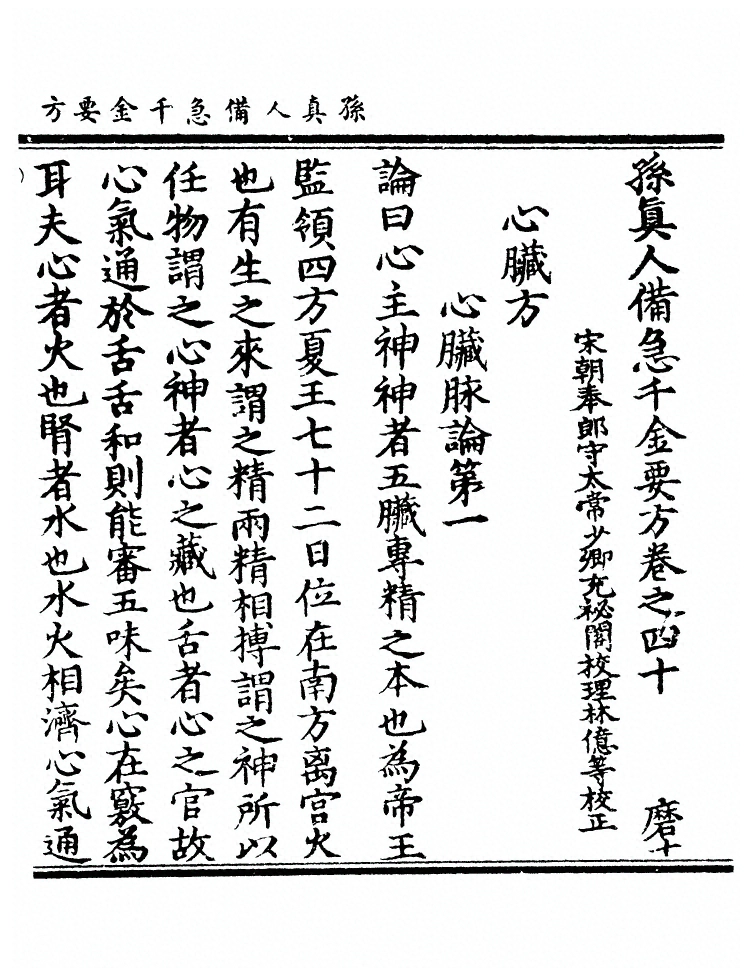 孫真人備急千金要方
孫真人備急千金要方卷之四十 磨十
宋朝奉郎守太常少卿充祕閣校理林億等校正
心臟方
心臟脉論第一
論曰心主神神者五臟專精之本也為帝王
監領四方夏王七十二日位在南方离宮火
也有生之來謂之精兩精相搏謂之神所以
任物謂之心神者心之藏也舌者心之官故
心氣通於舌舌和則能審五味矣心在竅為
耳夫心者火也腎者水也水火相濟心氣通